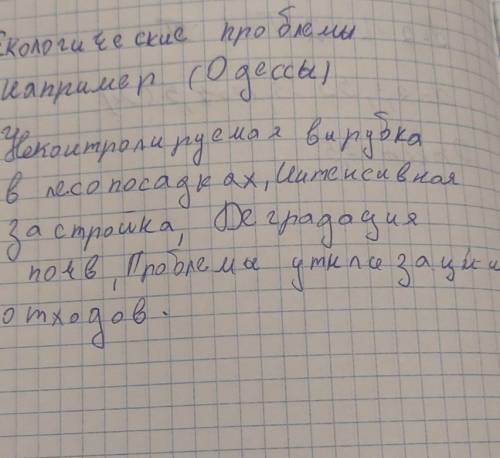 Экологические проблемы
например (Одессы)
Неконтролируемая вирубка
в лесопосадках, Интенсивная
застройка, Деградация
почв, Проблемы утилизации
отходов.